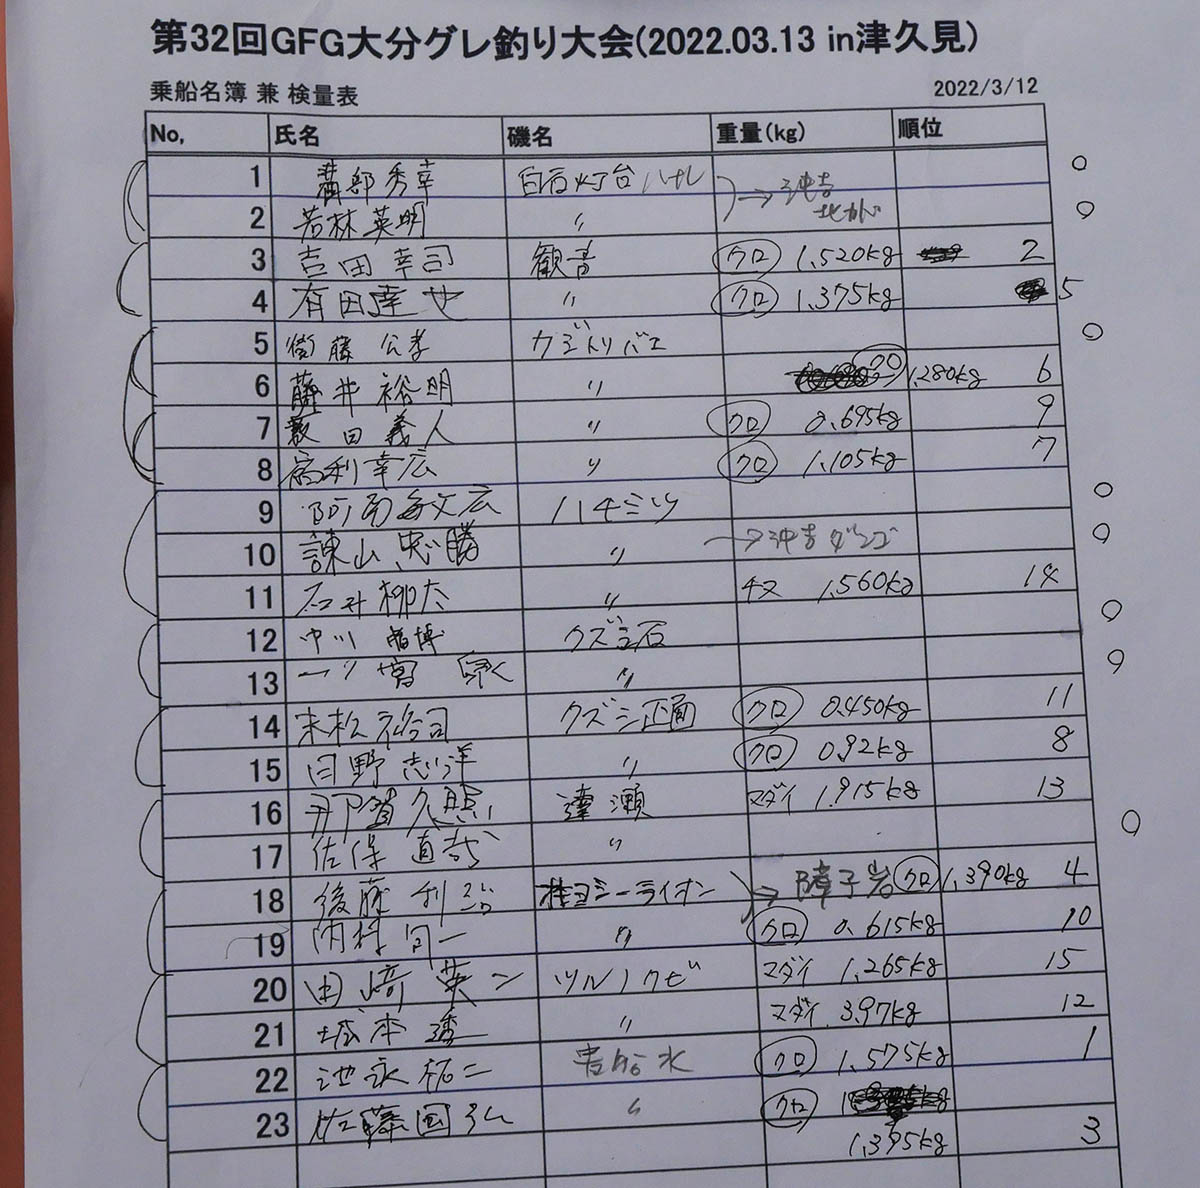 第32回GFG大分グレ釣り大会(2022.03.13 in津久見)
乗船名簿 兼 検量表 2022/3/12
No, 氏名 磯名 重量(kg) 順位
1 溝部秀幸 白石灯台ハナレ → 沖吉
2 若林英明 〃
3 吉田幸司 観音 クロ 1.520kg 2
4 有田達也 〃 クロ 1.375kg 5
5 衛藤公孝 カジトリバエ
6 藤井裕明 〃 クロ 1.280kg 6
7 薮田義人 〃 クロ 0.695kg 9
8 高利幸広 〃 クロ 1.105kg 7
9 阿南敏広 ハチミツ
10 諌山忠勝 〃 → 沖吉ダンゴ
11 石井柳太 〃 チヌ 1.560kg 14
12 中川 博 クズシ石
13 〃
14 末松裕司 クズシ正面 クロ 0.450kg 11
15 日野志洋 〃 クロ 0.92kg 8
16 久照 蓬瀬 マダイ 1.915kg 13
17 佐保直哉 〃
18 後藤利 ヨシーライオン → 障子岩 クロ 1.390kg 4
19 内村 一 〃 クロ 0.615kg 10
20 田崎英二 ツルノクビ マダイ 1.265kg 15
21 城本透 〃 マダイ 3.97kg 12
22 池永祐二 水 クロ 1.575kg 1
23 佐藤国弘 〃 クロ
1.395kg 3